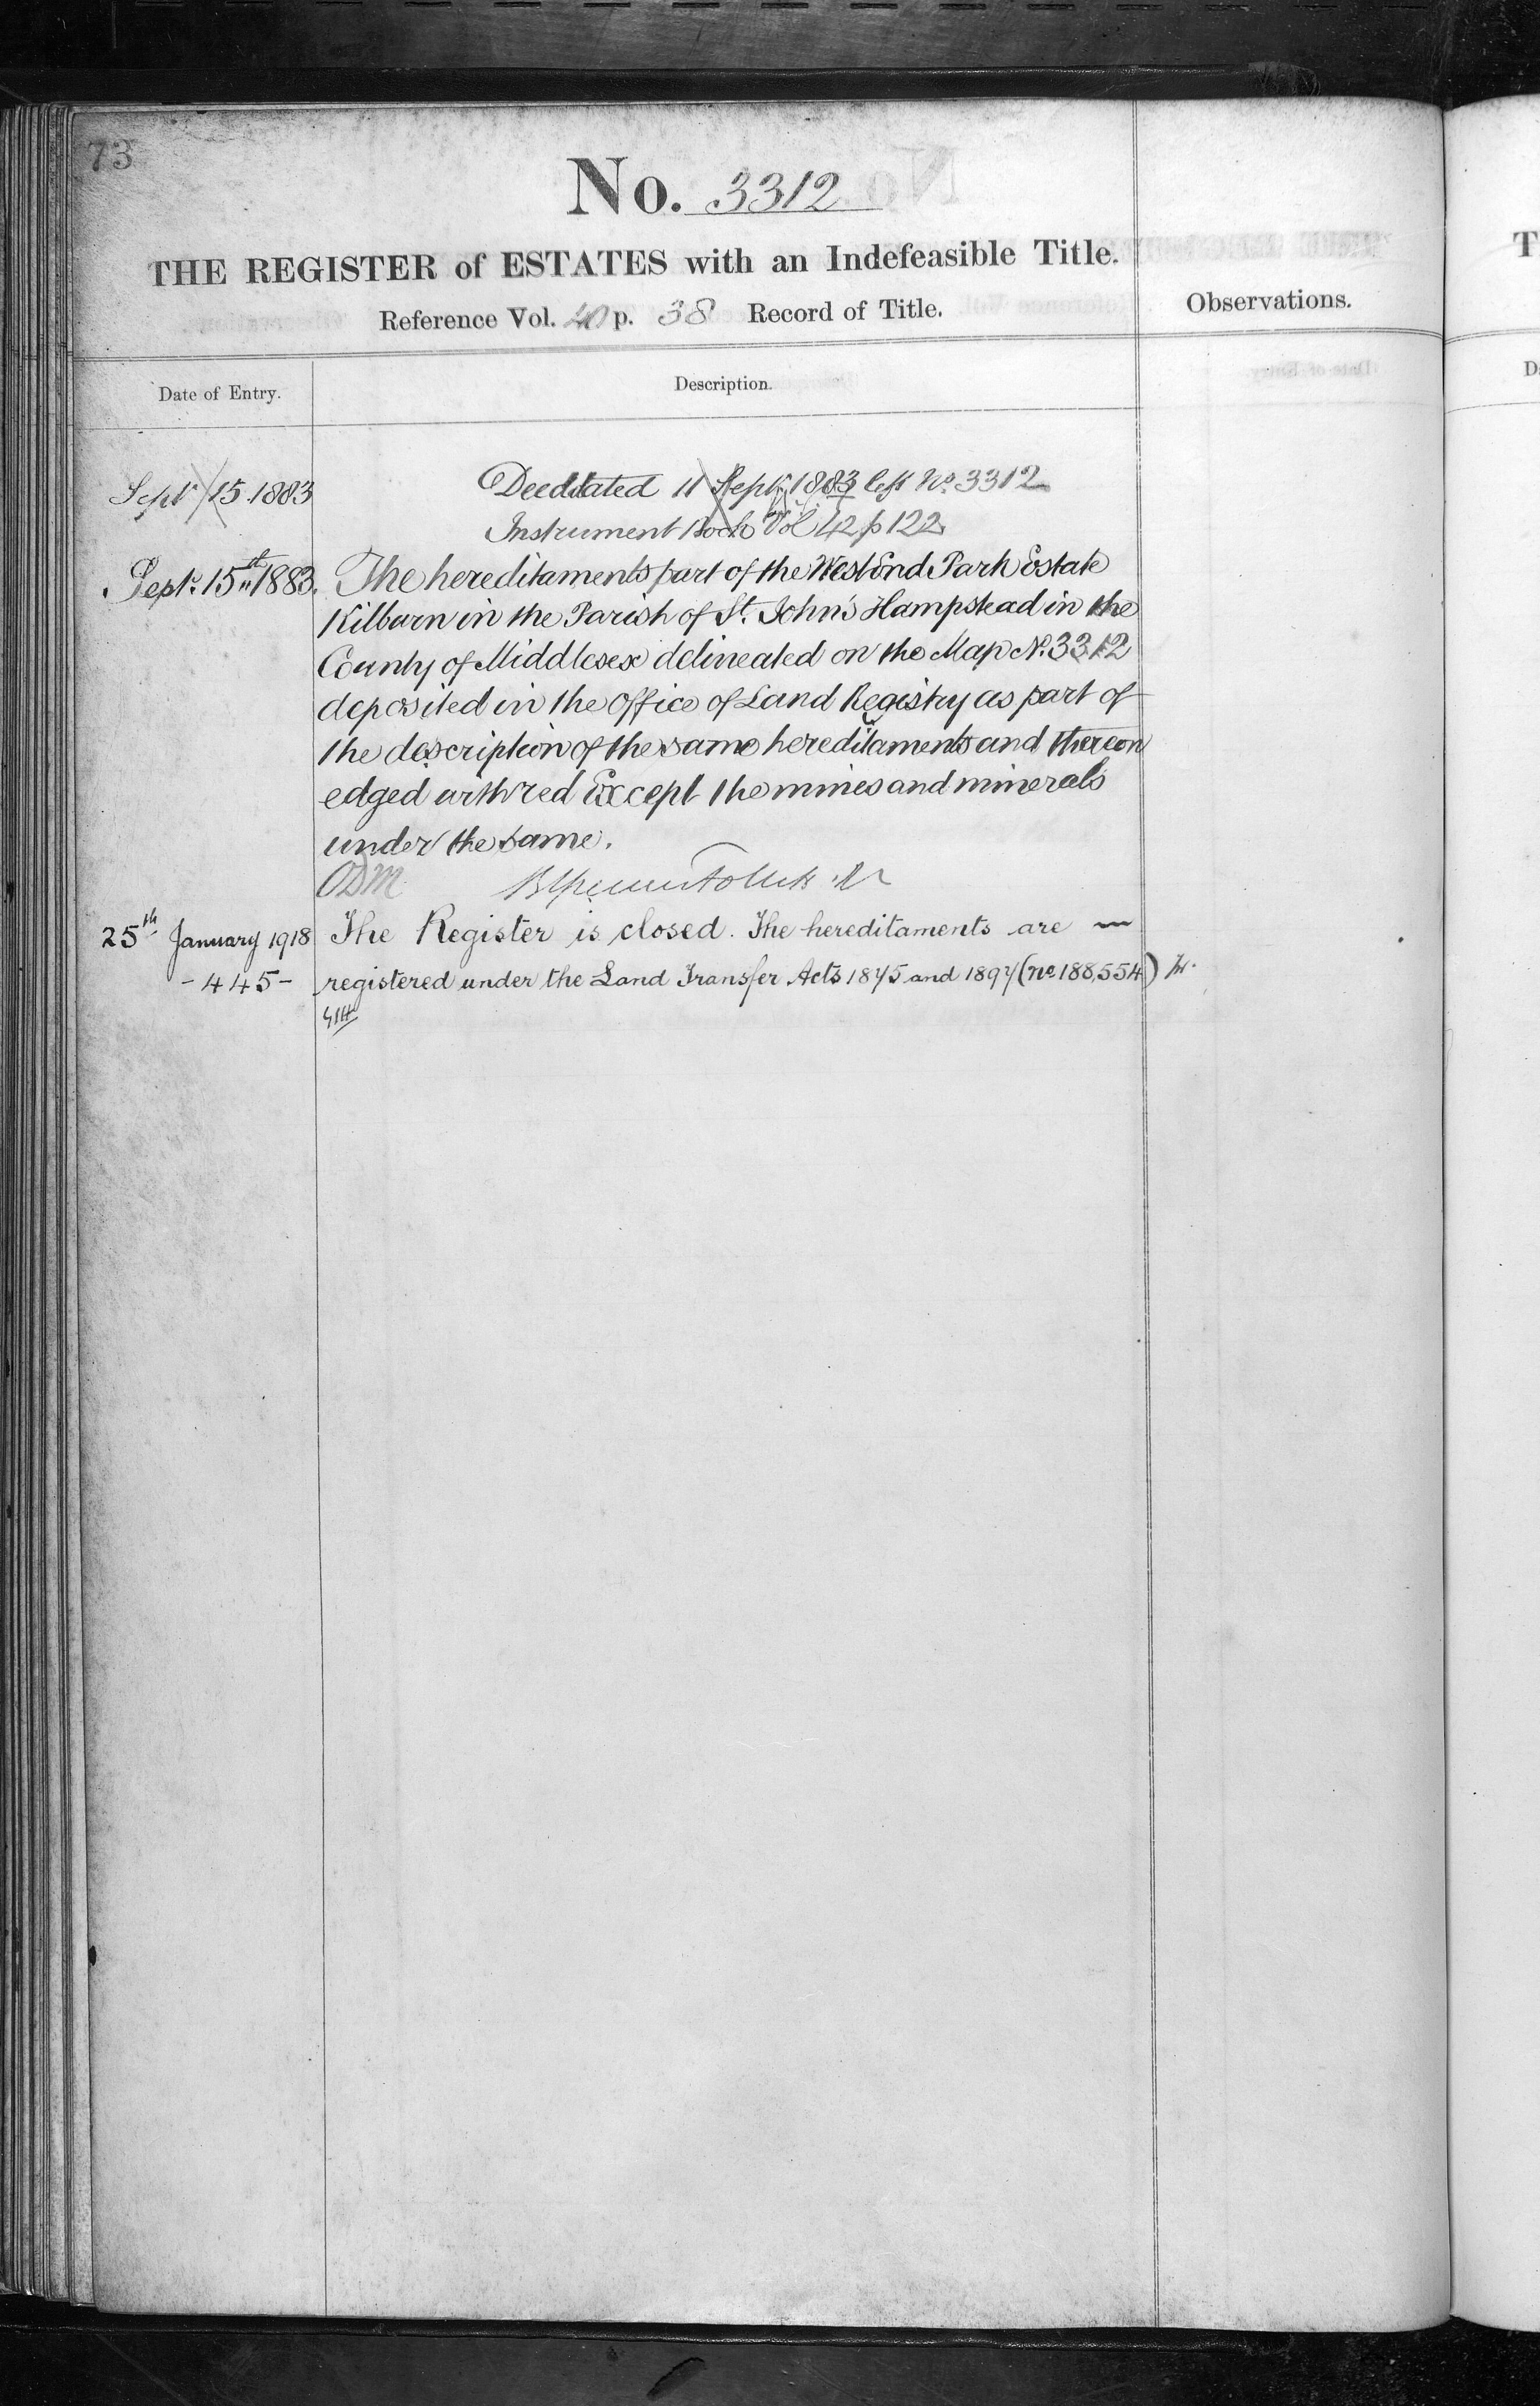 73
No. 3312
THE REGISTER of ESTATES with an Indefeasible Title.
Reference Vol. 40 p. 38 Record of Title.
Observations.
Date of Entry.
Description.
Sept 15 1883
Deed dated 11 Sept. 1883 left No. 3312
Instrument Book Vol 42 p 122
Sept. 15th 1883.
The hereditaments part of the West End Park Estate
Kilburn in the Parish of St. John's Hampstead in the
County of Middlesex delineated on the Map No. 3312
deposited in the Office of Land Registry as part of
the description of the same hereditaments and thereon
edged with red Except the mines and minerals
under the same.
ODM
25th January 1918
The Register is closed. The hereditaments are —
- 445 -
registered under the Land Transfer Acts 1875 and 1897 (No. 188,554)